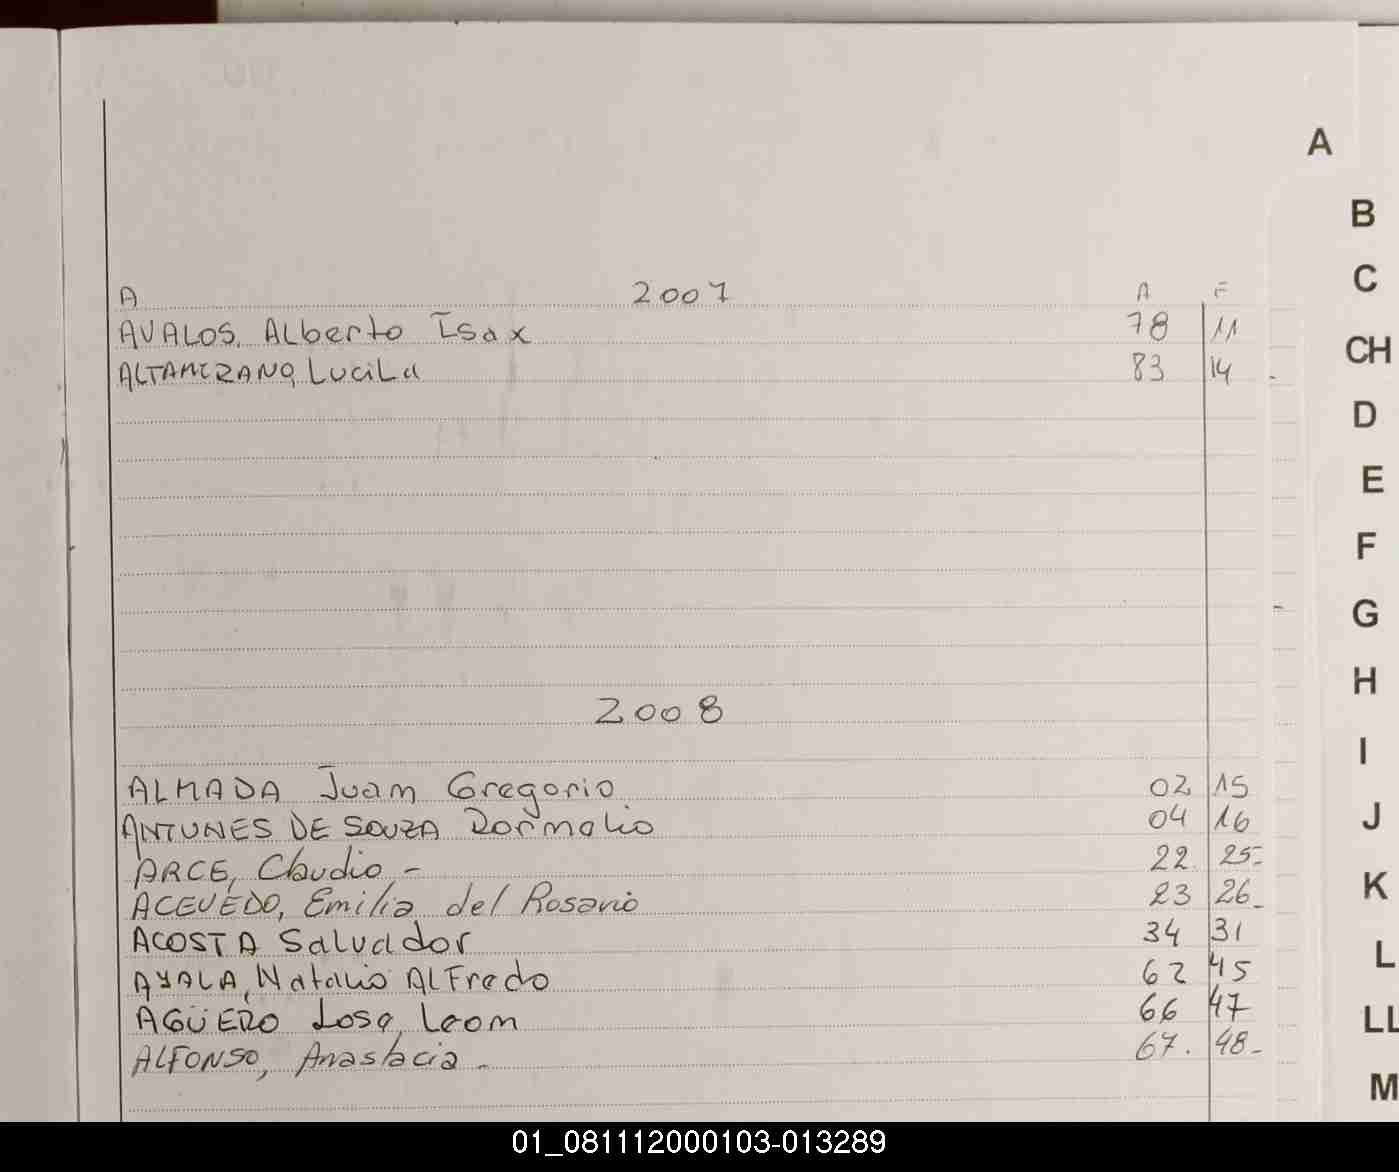 A 2007 A F
AVALOS, Alberto Isax 78 11
ALTAMIRANO, Lucila 83 14
2008
ALMADA Juam Gregorio 02 15
ANTUNES DE SOUZA Dormalio 04 16
ARCE, Claudio - 22. 25-
ACEVEDO, Emilia del Rosario 23 26-
ACOSTA Salvador 34 31
AYALA, Natalio Alfredo 62 45
AGÜERO Jose, Leom 66 47
ALFONSO, Anastacia - 67. 48-
A
B
C
CH
D
E
F
G
H
I
J
K
L
LL
M
01_081112000103-013289